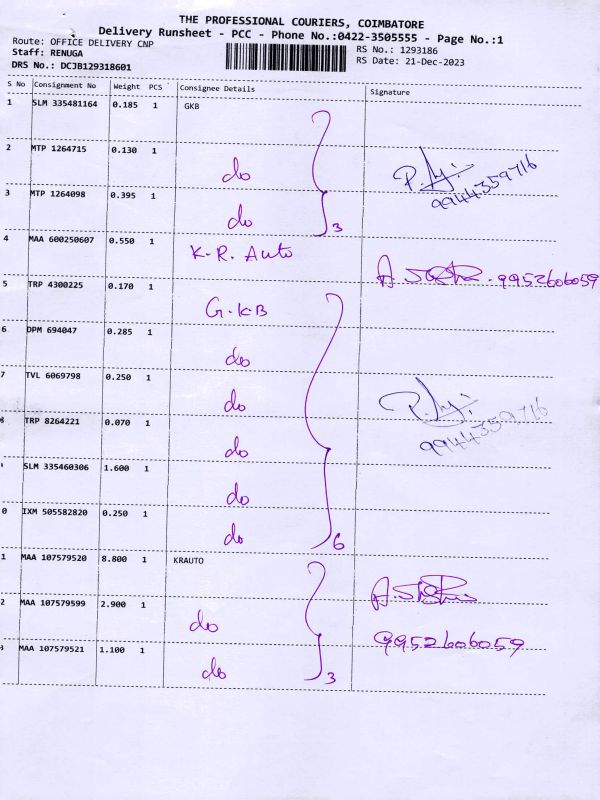 THE PROFESSIONAL COURIERS, COIMBATORE
Delivery Runsheet - PCC - Phone No.:0422-3505555 - Page No.:1
Route: OFFICE DELIVERY CNP
Staff: RENUGA
DRS No.: DCJB129318601
RS No.: 1293186
RS Date: 21-Dec-2023
S No Consignment No Weight PCS Consignee Details Signature
1 SLM 335481164 0.185 1 GKB
2 MTP 1264715 0.130 1 do
9944359716
3 MTP 1264098 0.395 1 do 3
4 MAA 600250607 0.550 1 K.R. Auto
9952606059
5 TRP 4300225 0.170 1 G.KB
6 DPM 694047 0.285 1 do
7 TVL 6069798 0.250 1 do
8 TRP 8264221 0.070 1 do
9944359716
SLM 335460306 1.600 1 do
0 IXM 505582820 0.250 1 do 6
1 MAA 107579520 8.800 1 KRAUTO
2 MAA 107579599 2.900 1 do
9952606059
3 MAA 107579521 1.100 1 do 3